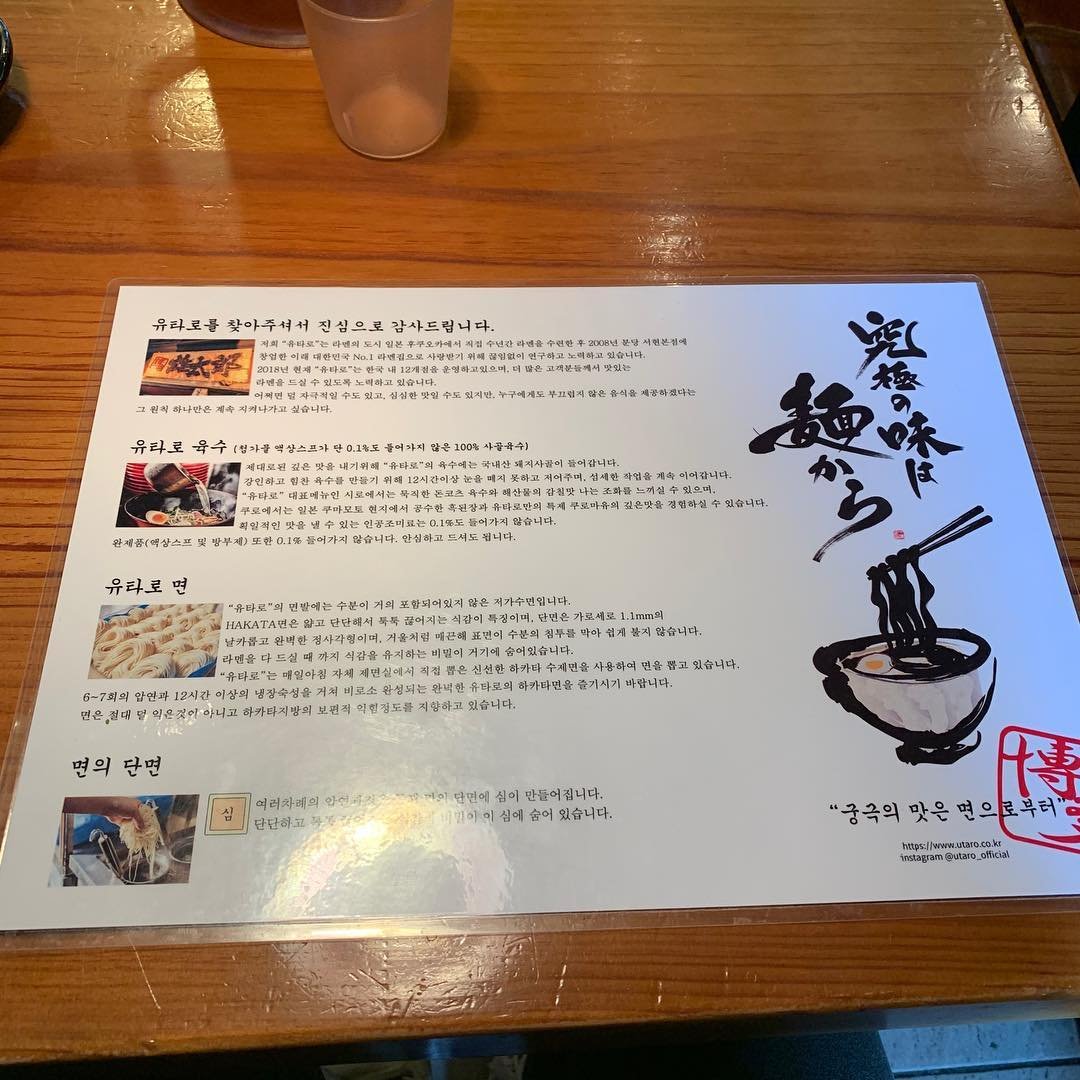 유타로를 찾아주셔서 진심으로 감사드립니다.
저희 "유타로"는 라멘의 도시 일본 후쿠오카에서 직접 수년간 라멘을 수련한 후 2008년 분당 서현본점에
창업한 이래 대한민국 No.1 라멘집으로 사랑받기 위해 끊임없이 연구하고 노력하고 있습니다.
2018년 현재 "유타로"는 한국 내 12개점을 운영하고있으며, 더 많은 고객분들께서 맛있는
라멘을 드실 수 있도록 노력하고 있습니다.
어쩌면 덜 자극적일 수도 있고, 심심한 맛일 수도 있지만, 누구에게도 부끄럽지 않은 음식을 제공하겠다는
그 원칙 하나만은 계속 지켜나가고 싶습니다.
유타로 육수 (첨가물 액상스프가 단 0.1%도 들어가지 않은 100% 사골육수)
제대로된 깊은 맛을 내기위해 "유타로"의 육수에는 국내산 돼지사골이 들어갑니다.
강인하고 힘찬 육수를 만들기 위해 12시간이상 눈을 떼지 못하고 저어주며, 섬세한 작업을 계속 이어갑니다.
"유타로" 대표메뉴인 시로에서는 묵직한 돈코츠 육수와 해산물의 감칠맛 나는 조화를 느끼실 수 있으며,
쿠로에서는 일본 쿠마모토 현지에서 공수한 흑된장과 유타로만의 특제 쿠로마유의 깊은맛을 경험하실 수 있습니다.
획일적인 맛을 낼 수 있는 인공조미료는 0.1%도 들어가지 않습니다.
완제품(액상스프 및 방부제) 또한 0.1% 들어가지 않습니다. 안심하고 드셔도 됩니다.
유타로 면
"유타로"의 면발에는 수분이 거의 포함되어있지 않은 저가수면입니다.
HAKATA면은 얇고 단단해서 툭툭 끊어지는 식감이 특징이며, 단면은 가로세로 1.1mm의
날카롭고 완벽한 정사각형이며, 거울처럼 매끈해 표면이 수분의 침투를 막아 쉽게 불지 않습니다.
라멘을 다 드실 때 까지 식감을 유지하는 비밀이 거기에 숨어있습니다.
"유타로"는 매일아침 자체 제면실에서 직접 뽑은 신선한 하카타 수제면을 사용하여 면을 뽑고 있습니다.
6~7회의 압연과 12시간 이상의 냉장숙성을 거쳐 비로소 완성되는 완벽한 유타로의 하카타면을 즐기시기 바랍니다.
면은 절대 덜 익은것이 아니고 하카타지방의 보편적 익힘정도를 지향하고 있습니다.
면의 단면
심
여러차례의 면의 단면에 심이 만들어집니다.
단단하고 비밀이 이 심에 숨어 있습니다.
究極の味は
麺から
"궁극의 맛은 면으로부터"
https://www.utaro.co.kr
instagram @utaro_official